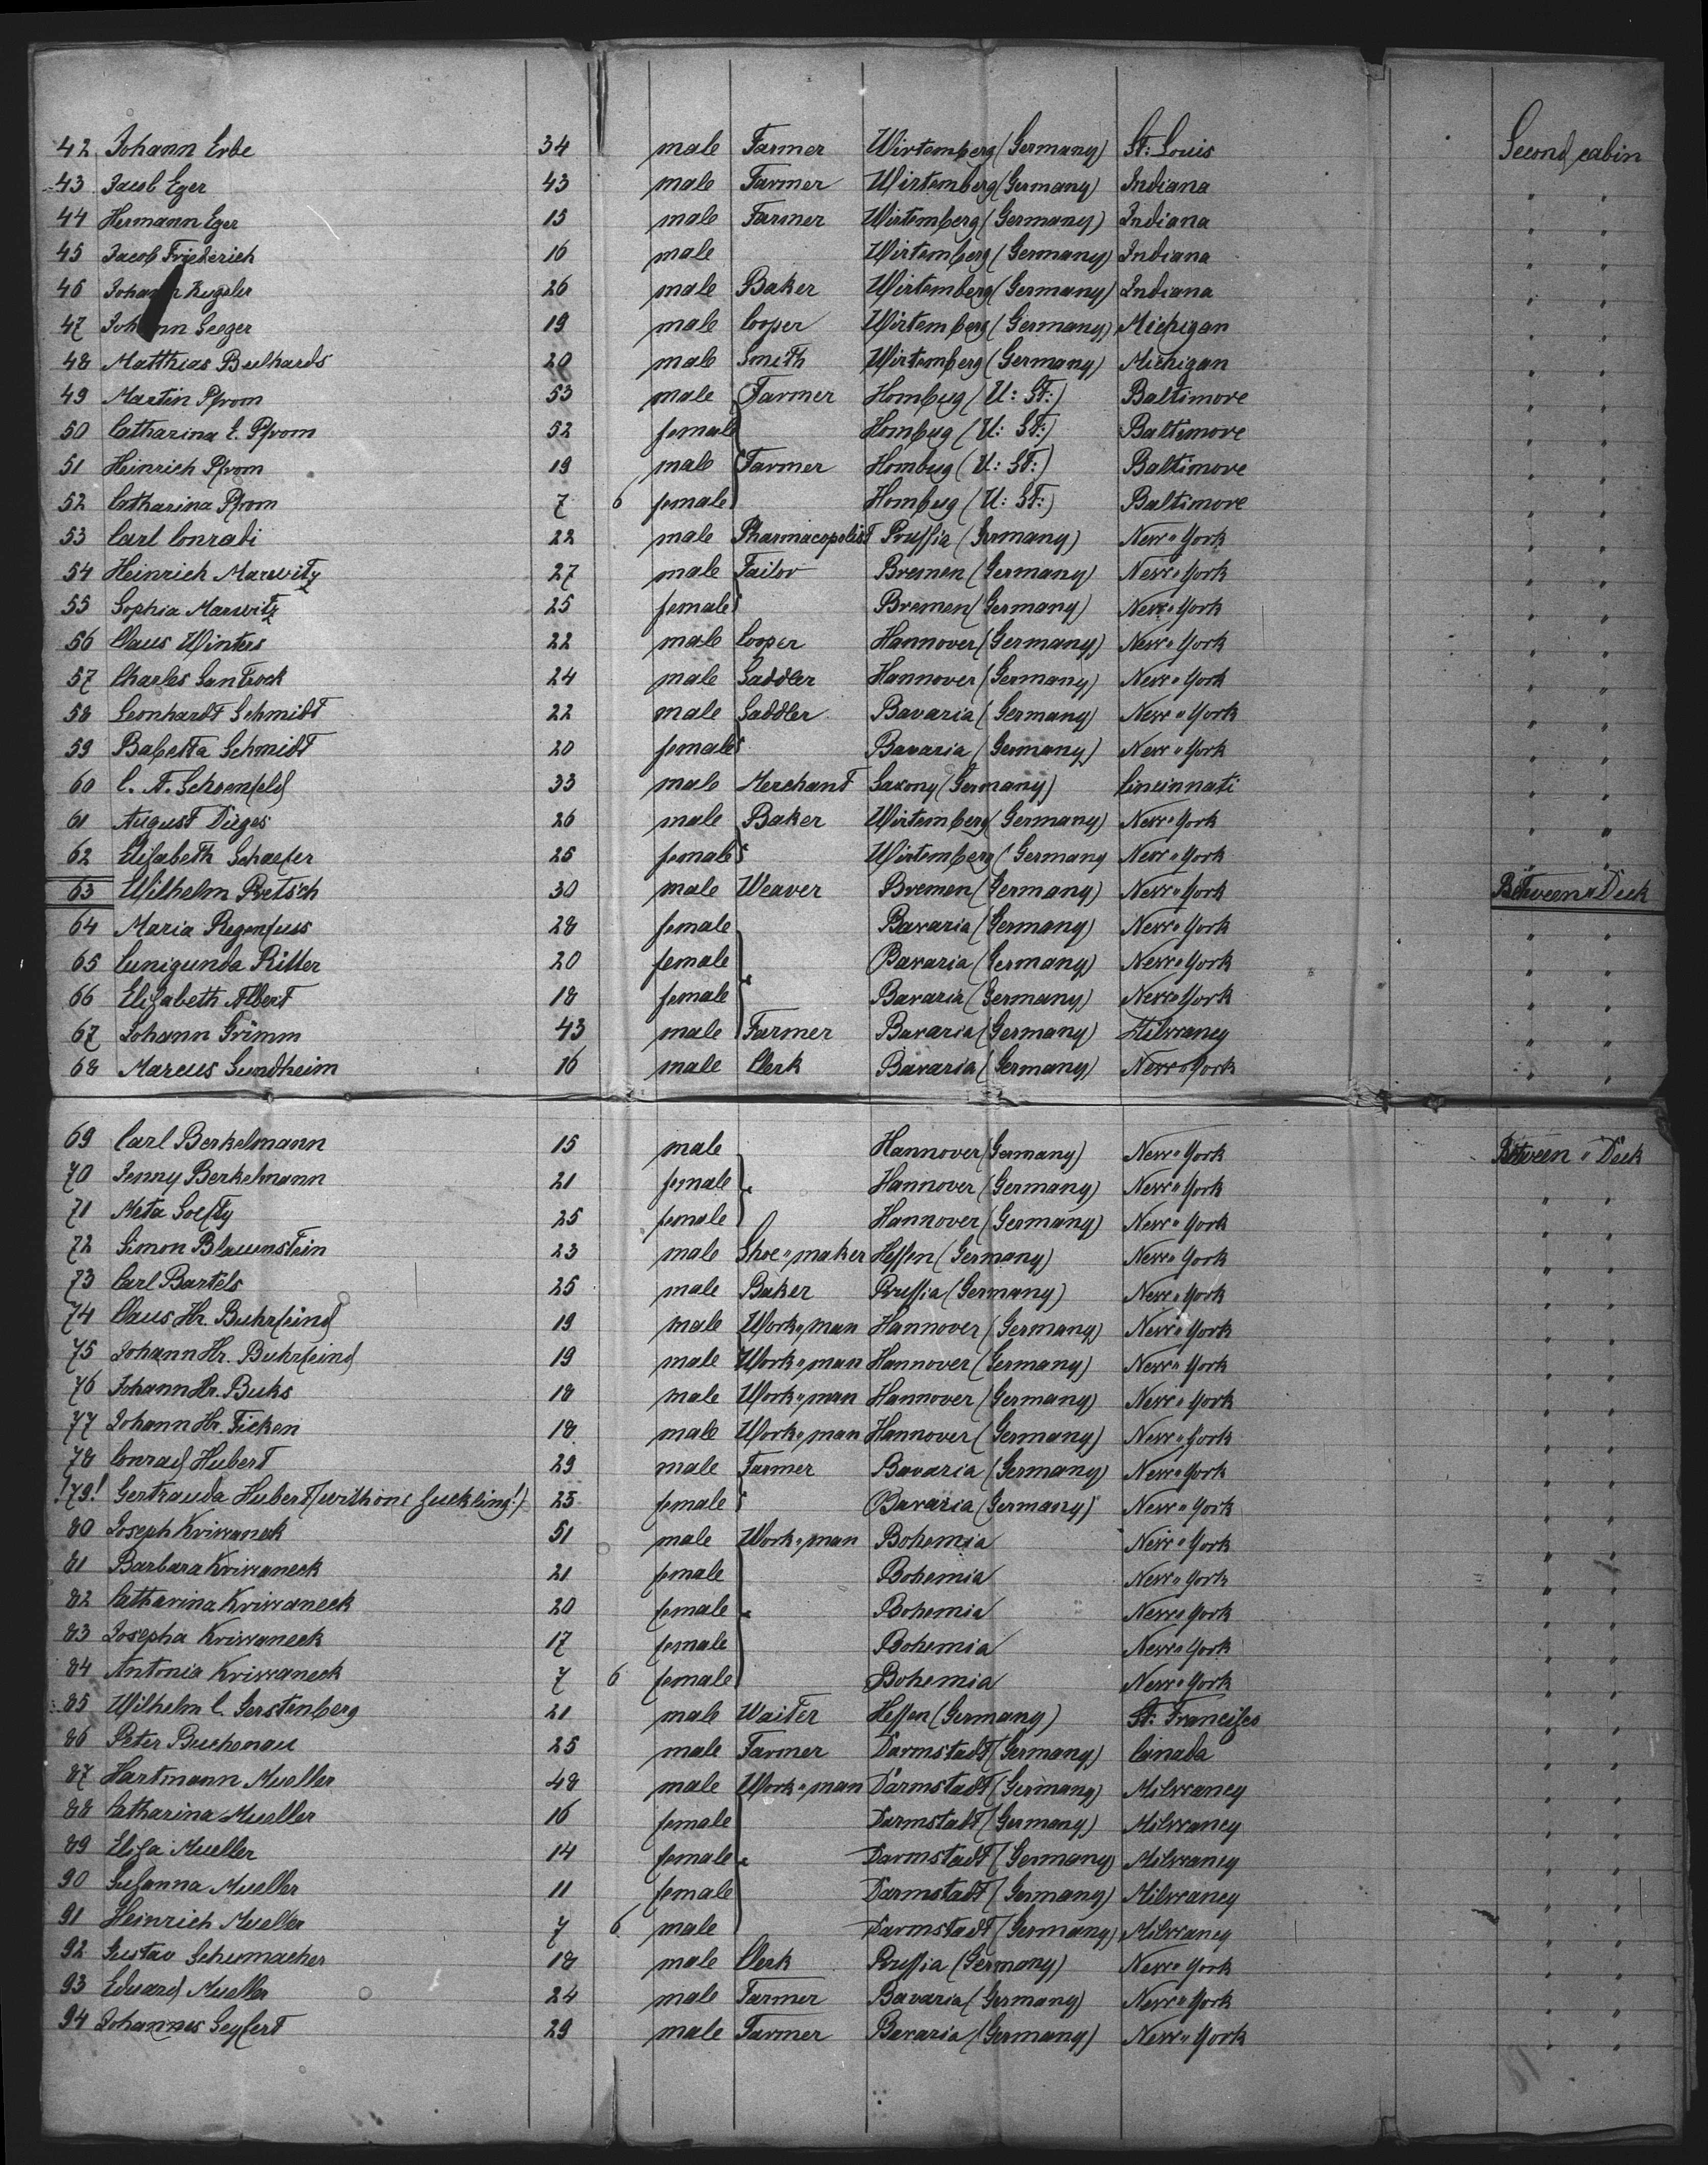 42 Johann Erbe 34 male Farmer Wirtemberg (Germany) St: Louis Second cabin
43 Jacob Eger 43 male Farmer Wirtemberg (Germany) Indiana " "
44 Hermann Eger 15 male Farmer Wirtemberg (Germany) Indiana " "
45 Jacob Friederich 16 male Wirtemberg (Germany) Indiana " "
46 Johann Kugeler 26 male Baker Wirtemberg (Germany) Indiana " "
47 Johann Seeger 19 male Cooper Wirtemberg (Germany) Michigan " "
48 Matthias 20 male Smith Wirtemberg (Germany) Michigan " "
49 Martin Pfrom 53 male Farmer Homburg (U: St:) Baltimore " "
50 Catharina E. Pfrom 52 female Homburg (U: St:) Baltimore " "
51 Heinrich Pfrom 19 male Farmer Homburg (U: St:) Baltimore " "
52 Catharina Pfrom 7 6 female Homburg (U: St:) Baltimore " "
53 Carl Conradi 22 male Pharmacopolist Prussia (Germany) New-York " "
54 Heinrich Marwitz 27 male Tailor Bremen (Germany) New-York " "
55 Sophia Marwitz 25 female Bremen (Germany) New-York " "
56 Claus Winters 22 male Cooper Hannover (Germany) New-York " "
57 Charles Santrock 24 male Saddler Hannover (Germany) New-York " "
58 Leonhardt Schmidt 22 male Saddler Bavaria (Germany) New-York " "
59 Babetta Schmidt 20 female Bavaria (Germany) New-York " "
60 C. A. Schoenfeld 33 male Merchant Saxony (Germany) Cincinnati " "
61 August Dieges 26 male Baker Wirtemberg (Germany) New-York " "
62 Elisabeth Schaefer 25 female Wirtemberg (Germany New-York " "
63 Wilhelm Pietsch 30 male Weaver Bremen (Germany) New-York Between-Deck
64 Maria Regenfuss 28 female Bavaria (Germany) New-York " "
65 Cunigunda Ritter 20 female Bavaria (Germany) New-York " "
66 Elisabeth Albert 18 female Bavaria (Germany) New-York " "
67 Johann Grimm 43 male Farmer Bavaria (Germany) Milwaney " "
68 Marcus Sundheim 16 male Clerk Bavaria (Germany) New-York " "
69 Carl Berkelmann 15 male Hannover (Germany) New-York Between-Deck
70 Jenny Berkelmann 21 female Hannover (Germany) New-York " "
71 Meta 25 female Hannover (Germany) New-York " "
72 Simon Blauenstein 23 male Shoe-maker Hessen (Germany) New-York " "
73 Carl Bartels 25 male Baker Prussia (Germany) New-York " "
74 Claus Hr. Buhrfeind 19 male Work-man Hannover (Germany) New-York " "
75 Johann Hr. Buhrfeind 19 male Work-man Hannover (Germany) New-York " "
76 Johann Hr. Buks 18 male Work-man Hannover (Germany) New-York " "
77 Johann Hr. Ficken 18 male Work-man Hannover (Germany) New-York " "
78 Conrad Hubert 29 male Farmer Bavaria (Germany) New-York " "
!79! Gertrauda Hubert (with one suckling!) 25 female Bavaria (Germany) New-York " "
80 Joseph Kriwaneck 51 male Work-man Bohemia New-York " "
81 Barbara Kriwaneck 21 female Bohemia New-York " "
82 Catharina Kriwaneck 20 female Bohemia New-York " "
83 Josepha Kriwaneck 17 female Bohemia New-York " "
84 Antonia Kriwaneck 7 6 female Bohemia New-York " "
85 Wilhelm C. Gerstenberg 21 male Waiter Hessen (Germany) St: Francisco " "
86 Peter Buchenau 25 male Farmer Darmstadt (Germany) Canada " "
87 Hartmann Mueller 48 male Work-man Darmstadt (Germany) Milwaney " "
88 Catharina Mueller 16 female Darmstadt (Germany) Milwaney " "
89 Elisa Mueller 14 female Darmstadt (Germany) Milwaney " "
90 Susanna Mueller 11 female Darmstadt (Germany) Milwaney " "
91 Heinrich Mueller 7 6 male Darmstadt (Germany) Milwaney " "
92 Gustav Schumacher 18 male Clerk Prussia (Germany) New-York " "
93 Eduard Mueller 24 male Farmer Bavaria (Germany) New-York " "
94 Johannes Seyfert 29 male Farmer Bavaria (Germany) New-York " "